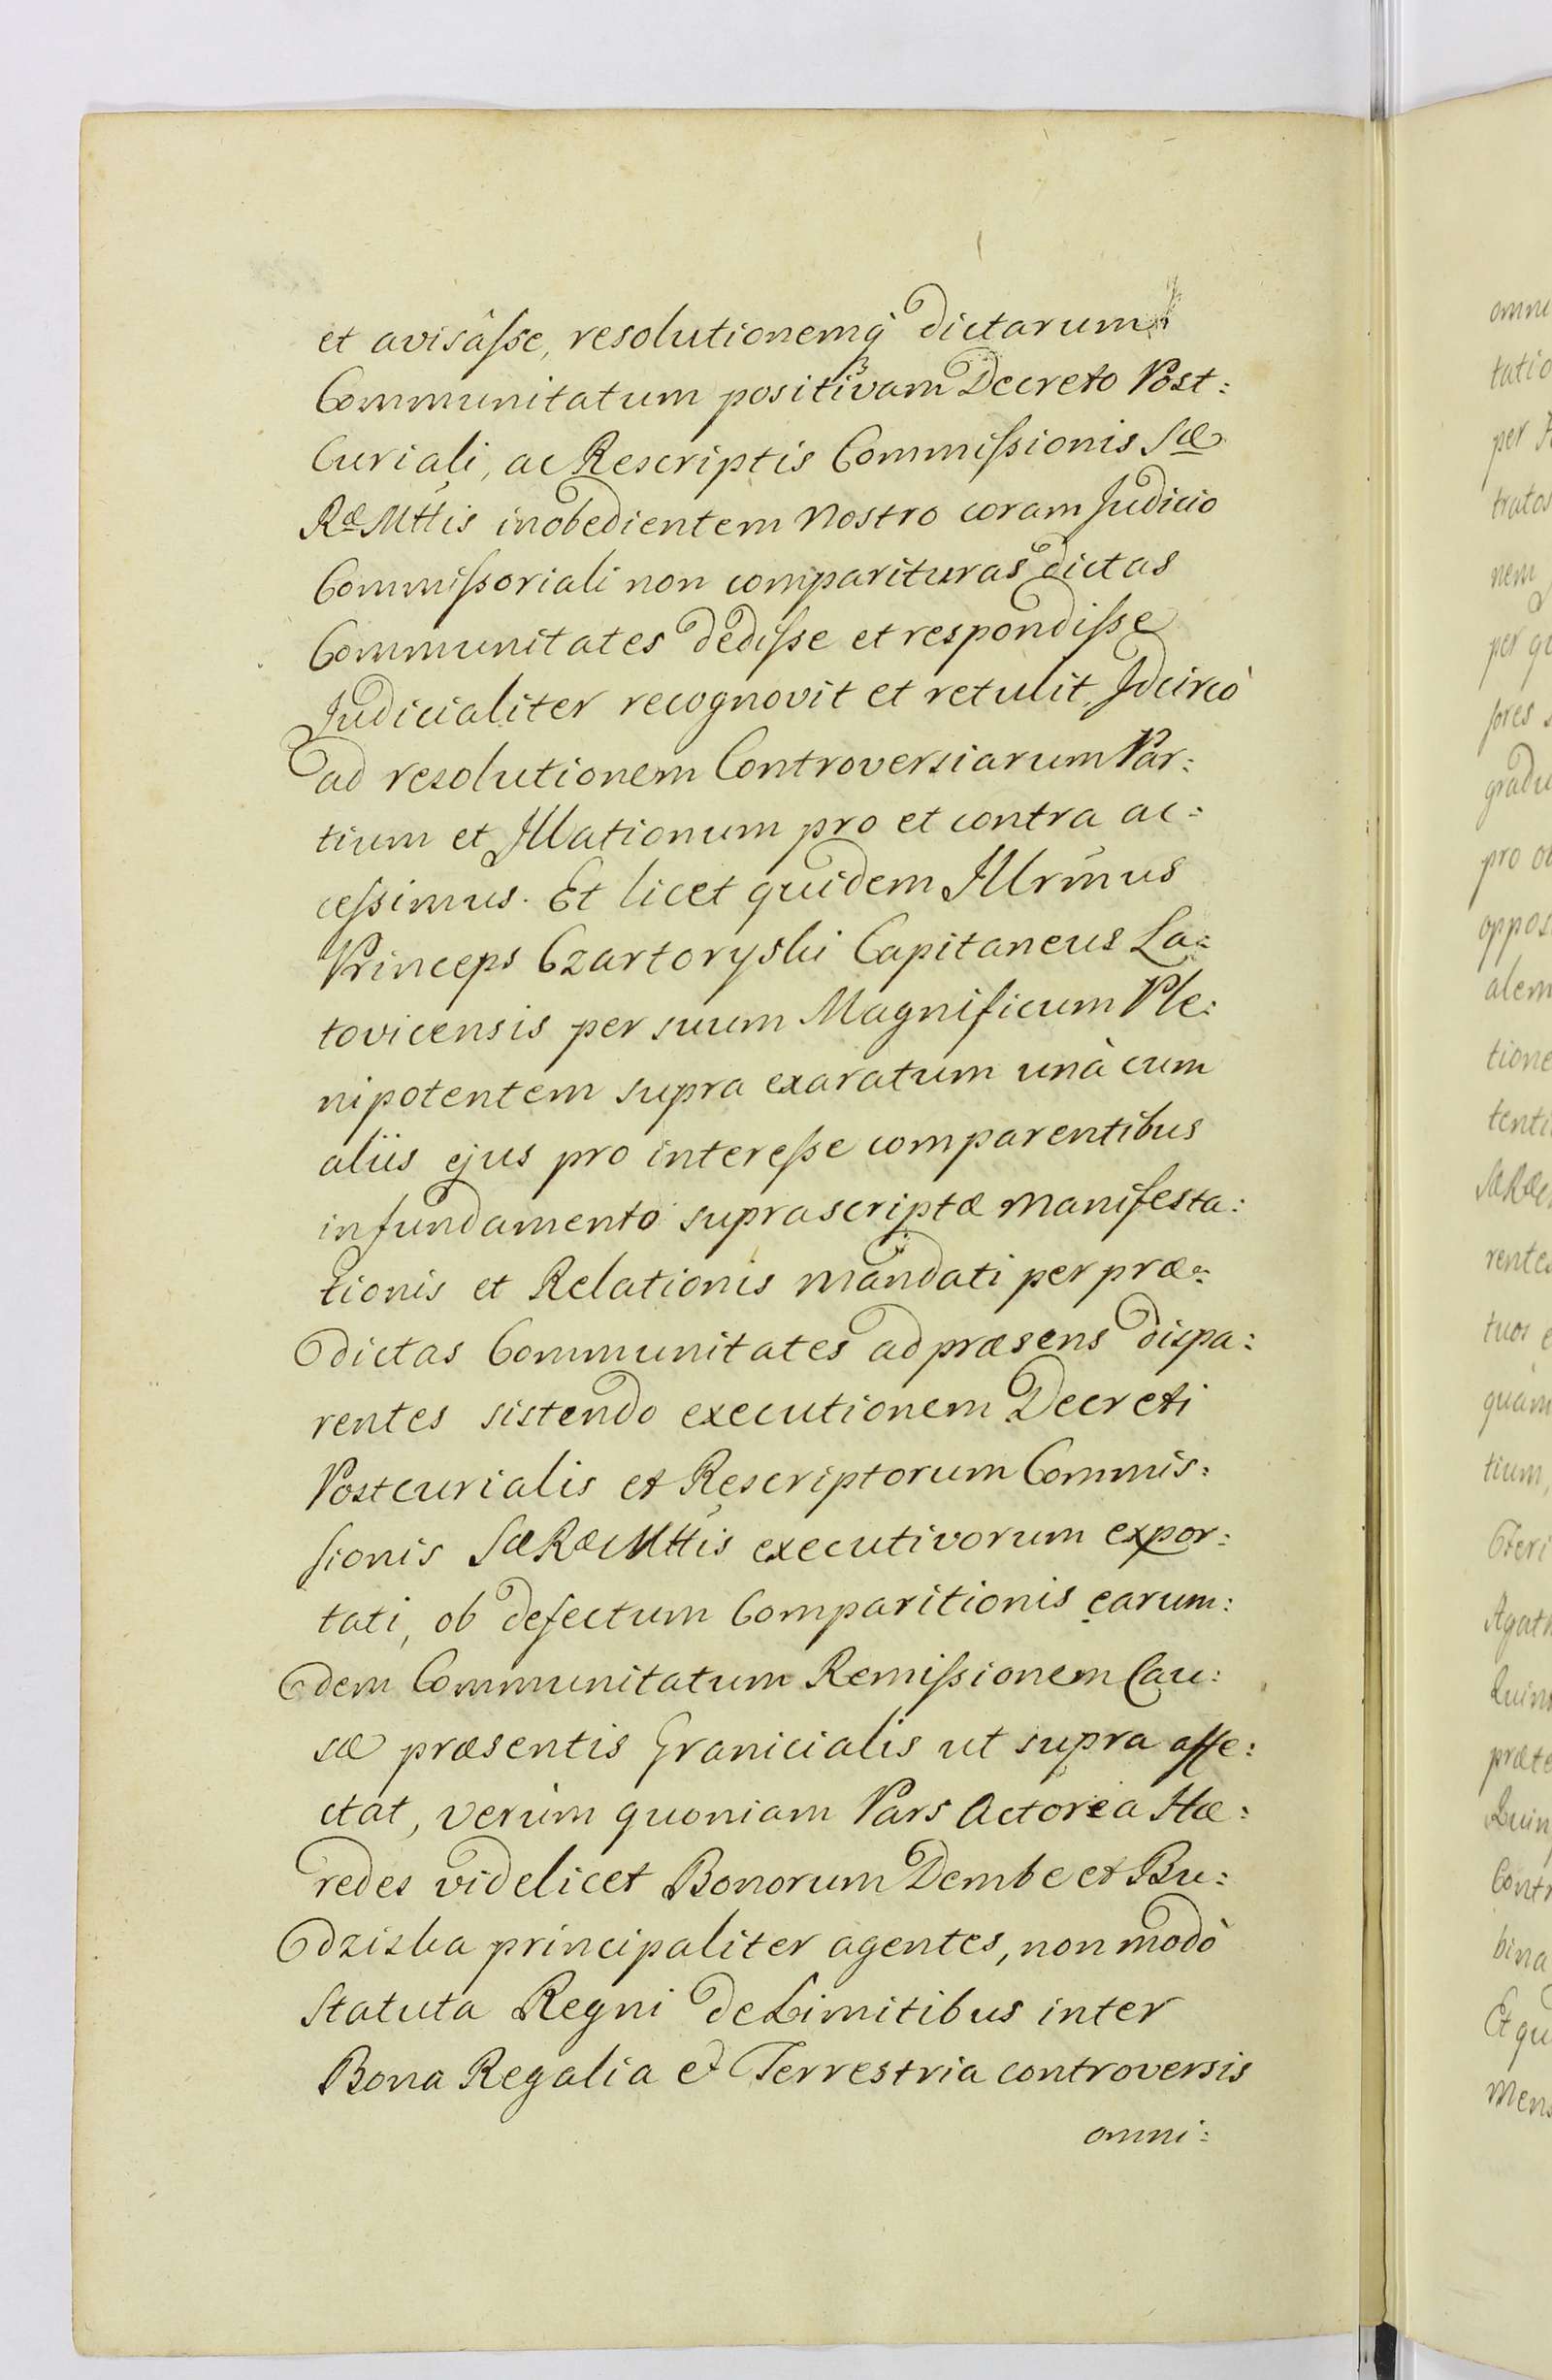 et avisâſse, resolutionemq́ dictarum
Communitatum positivam Decreto Post:
Curiali, ac Rescriptis Commiſsionis Sæ
Ræ Mttis inobedientem Nostro coram Judicio
Commiſsoriali non comparituras dictas
Communitates dediſse et respondiſse
Judicialiter recognovit et retulit, Idcircò
ad resolutionem Controversiarum Par:
tium et Illationum pro et contra ac:
ceſsimus. Et licet quidem Illrm̃us
Princeps Czartoryski Capitaneus La:
tovicensis per suum Magnificum Ple:
nipotentem supra exaratum unà cum
aliis ejus pro intereſse comparentibus
in fundamento suprascriptæ Manifesta:
tionis et Relationis Mandati per præ:
dictas Communitates ad præsens dispa:
rentes sistendo executionem Decreti
Postcurialis et Rescriptorum Commis:
sionis Sæ Ræ Mttis executivorum expor:
tati, ob defectum Comparitionis earum:
dem Communitatum Remiſsionem Cau:
sæ præsentis Granicialis ut supra affe:
ctat, verùm quoniam Pars Actorea Hæ:
redes videlicet Bonorum Dembe et Bu:
dziska principaliter agentes, non modò
Statuta Regni de Limitibus inter
Bona Regalia et Terrestria controversis
omni: